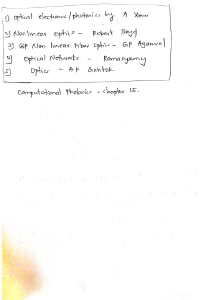 1) Optical electronics/photonics by A Yariv
2) Nonlinear Optics - Robert Boyd
3) GP Non linear Fiber Optic - GP Agarwal
4) Optical Networks - Ramaswamy
5) Optics - AK Ghatak
Computational Photonics - chapter 15.